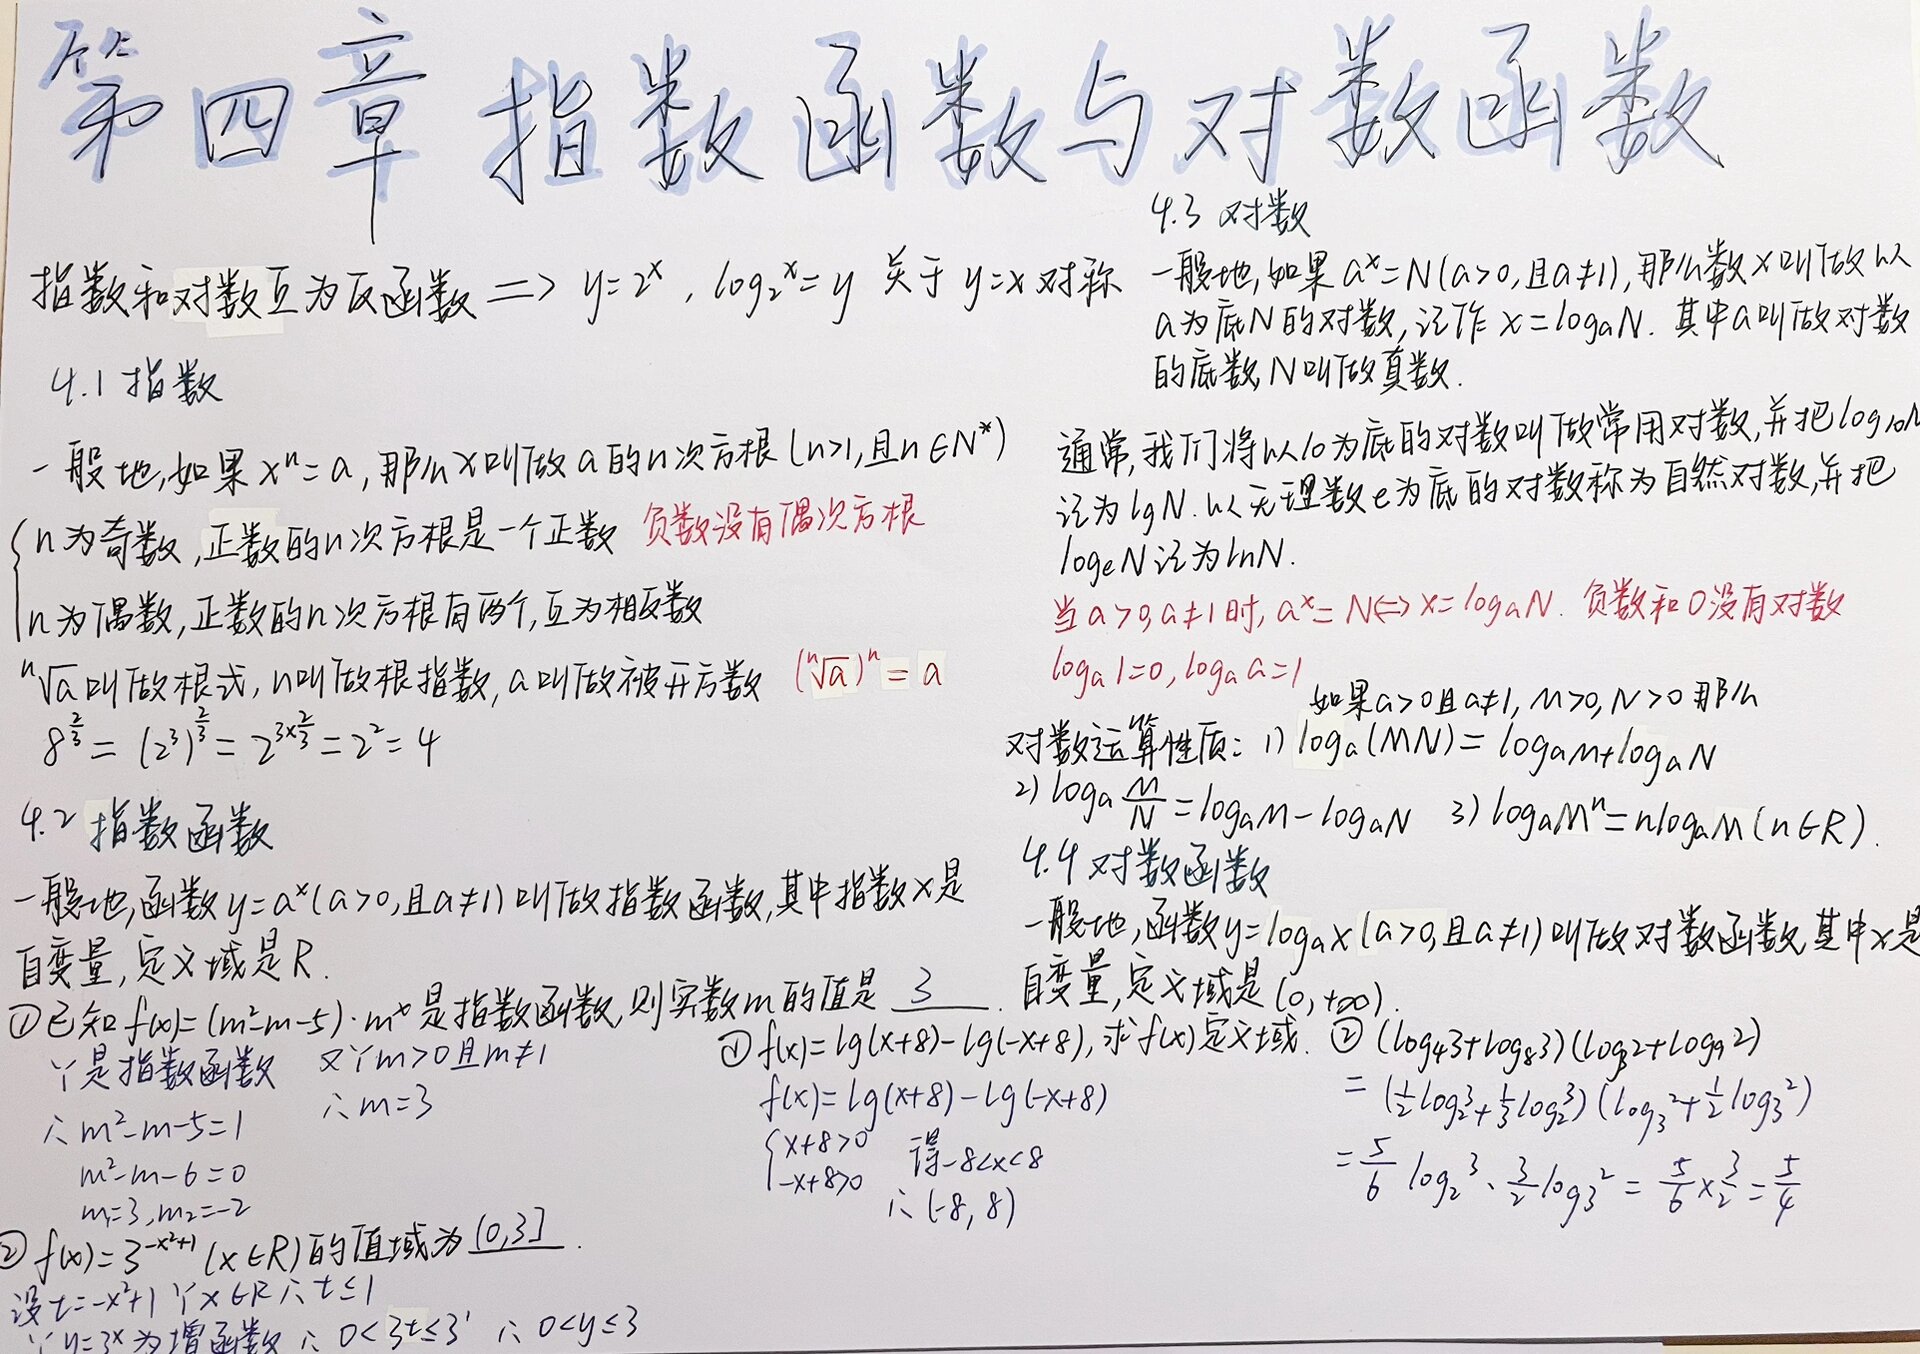 第四章 指数函数与对数函数
指数和对数互为反函数 => y=2^x , log₂^x=y 关于 y=x 对称
4.1 指数
一般地,如果 x^n=a, 那么x叫做a的n次方根 (n>1, 且n∈N*)
n为奇数, 正数的n次方根是一个正数 负数没有偶次方根
n为偶数, 正数的n次方根有两个, 互为相反数
ⁿ√a叫做根式, n叫做根指数, a叫做被开方数 (ⁿ√a)^n = a
8^(2/3) = (2^3)^(2/3) = 2^(3×2/3) = 2^2 = 4
4.2 指数函数
一般地, 函数y=a^x(a>0, 且a≠1)叫做指数函数, 其中指数x是
自变量, 定义域是R.
①已知f(x)=(m²-m-5)·m^x是指数函数, 则实数m的值是 3 .
∵是指数函数 又∵m>0且m≠1
∴m²-m-5=1 ∴m=3
m²-m-6=0
m₁=3, m₂=-2
②f(x)=3^(-x²+1) (x∈R)的值域为(0,3].
设t=-x²+1 ∵x∈R∴t≤1
∵y=3^x为增函数∴0<3^t≤3^1 ∴0<y≤3
4.3 对数
一般地, 如果 a^x=N(a>0, 且a≠1), 那么数x叫做以
a为底N的对数, 记作 x=logₐN. 其中a叫做对数
的底数, N叫做真数.
通常, 我们将以10为底的对数叫做常用对数, 并把log₁₀N
记为lgN. 以无理数e为底的对数称为自然对数, 并把
logₑN记为lnN.
当a>0, a≠1时, a^x=N<=>x=logₐN. 负数和0没有对数
logₐ1=0, logₐa=1
如果a>0且a≠1, M>0, N>0那么
对数运算性质: 1) logₐ(MN)=logₐM+logₐN
2) logₐ M/N = logₐM-logₐN 3) logₐM^n=nlogₐM(n∈R).
4.4 对数函数
一般地, 函数y=logₐx(a>0, 且a≠1)叫做对数函数, 其中x是
自变量, 定义域是(0,+∞).
①f(x)=lg(x+8)-lg(-x+8), 求f(x)定义域.
f(x)=lg(x+8)-lg(-x+8)
x+8>0 得-8<x<8
-x+8>0
∴(-8,8)
②(log₄3+log₈3)(log₃2+log₉2)
=(1/2 log₂^3+1/3 log₂^3)(log₃^2+1/2 log₃^2)
=5/6 log₂^3·3/2 log₃^2 = 5/6×3/2=5/4